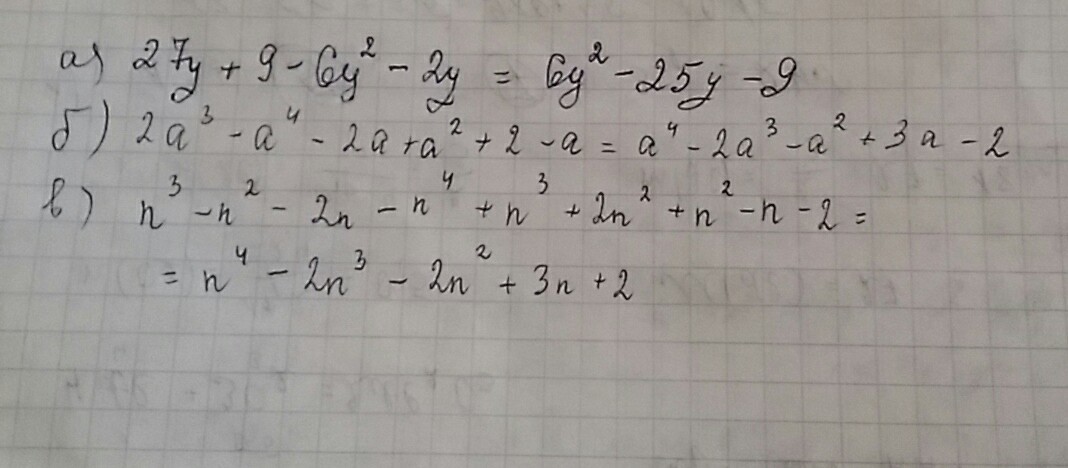 а) 27y + 9 - 6y² - 2y = 6y² - 25y - 9
б) 2a³ - a⁴ - 2a + a² + 2 - a = a⁴ - 2a³ - a² + 3a - 2
в) n³ - n² - 2n - n⁴ + n³ + 2n² + n² - n - 2 =
= n⁴ - 2n³ - 2n² + 3n + 2